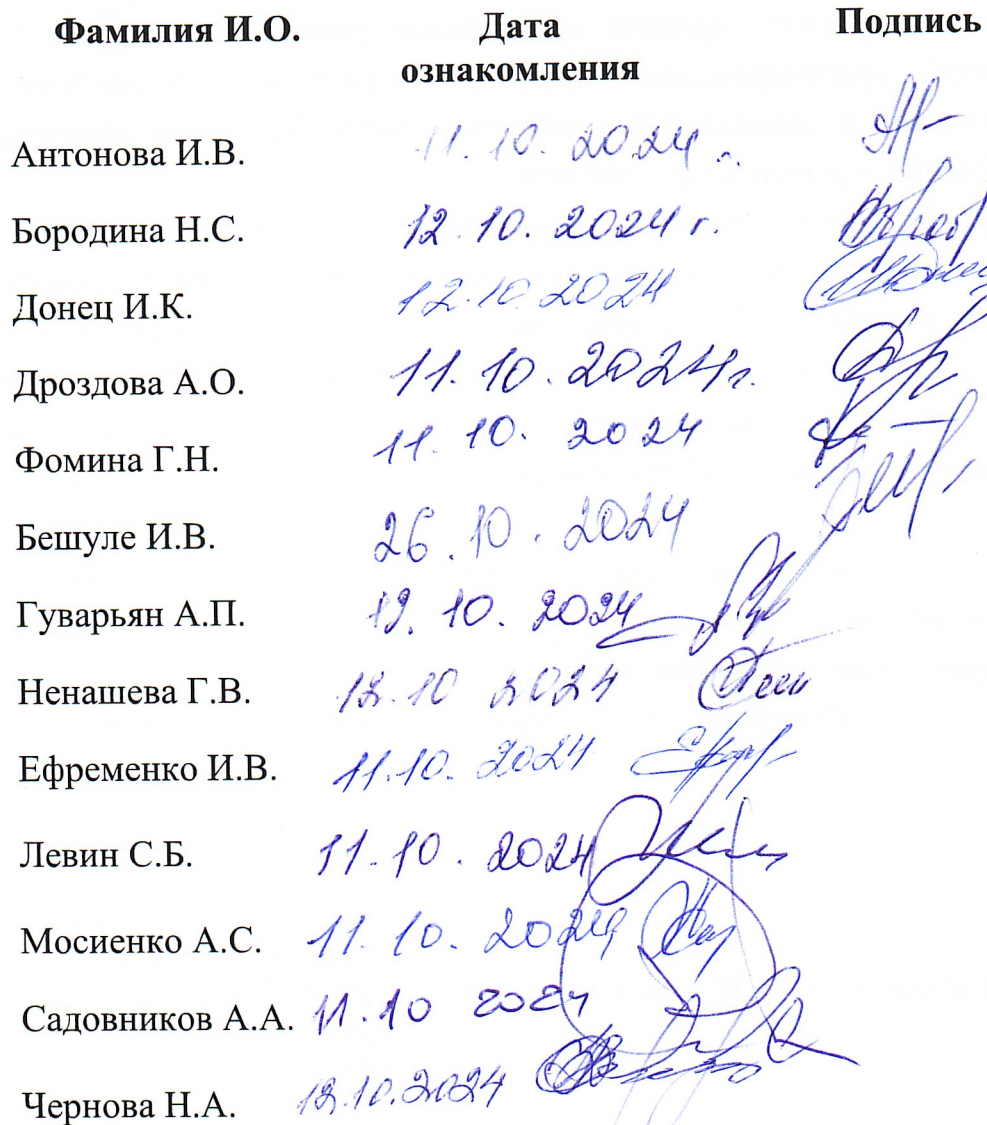 Фамилия И.О. Дата Подпись
ознакомления
Антонова И.В. 11.10.2024 г.
Бородина Н.С. 12.10.2024 г.
Донец И.К. 12.10.2024
Дроздова А.О. 11.10.2024г.
Фомина Г.Н. 11.10.2024
Бешуле И.В. 26.10.2024
Гуварьян А.П. 12.10.2024
Ненашева Г.В. 12.10 2024
Ефременко И.В. 11.10.2024
Левин С.Б. 11.10.2024
Мосиенко А.С. 11.10.2024
Садовников А.А. 11.10 2024
Чернова Н.А. 12.10.2024